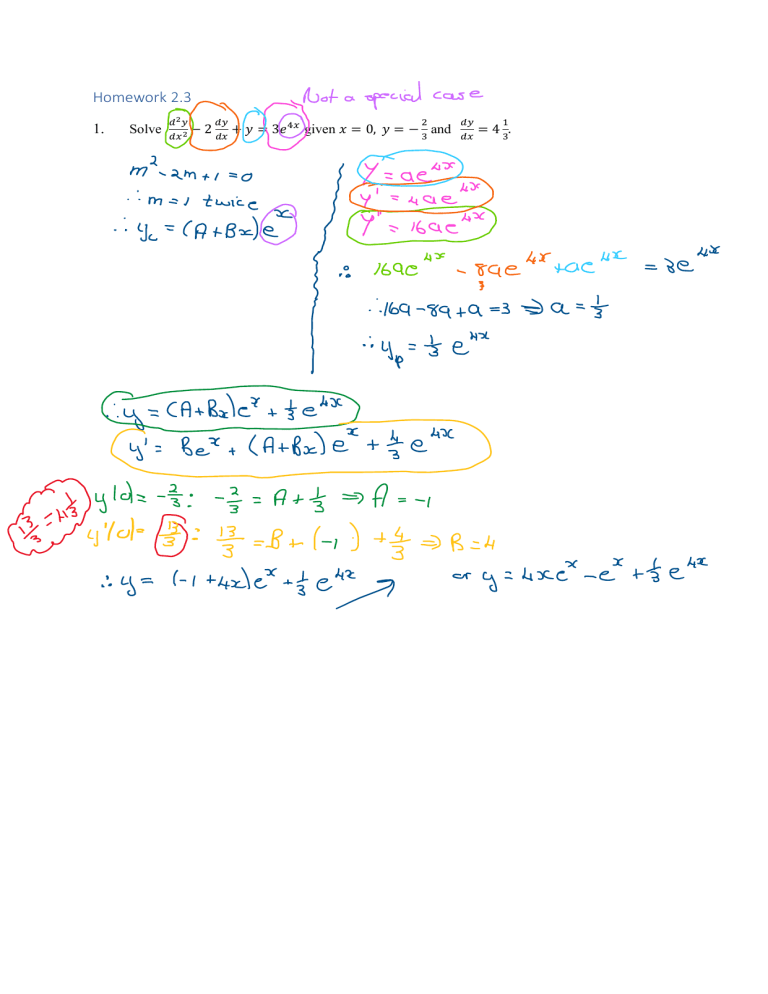 Homework 2.3
Not a special case
1. Solve d²y/dx² − 2 dy/dx + y = 3e^{4x} given x = 0, y = −2/3 and dy/dx = 4 1/3.
m² - 2m + 1 = 0
∴ m = 1 twice
∴ y_c = (A + Bx)e^x
y = ae^{4x}
y' = 4ae^{4x}
y'' = 16ae^{4x}
∴ 16ae^{4x} - 8ae^{4x} + ae^{4x} = 3e^{4x}
3
∴ 16a - 8a + a = 3 ⇒ a = 1/3
∴ y_p = 1/3 e^{4x}
∴ y = (A + Bx)e^x + 1/3 e^{4x}
y' = Be^x + (A + Bx)e^x + 4/3 e^{4x}
13/3 = 4 1/3
y(0) = -2/3 : -2/3 = A + 1/3 ⇒ A = -1
y'(0) = 13/3 : 13/3 = B + (-1) + 4/3 ⇒ B = 4
∴ y = (-1 + 4x)e^x + 1/3 e^{4x}
or y = 4xe^x - e^x + 1/3 e^{4x}